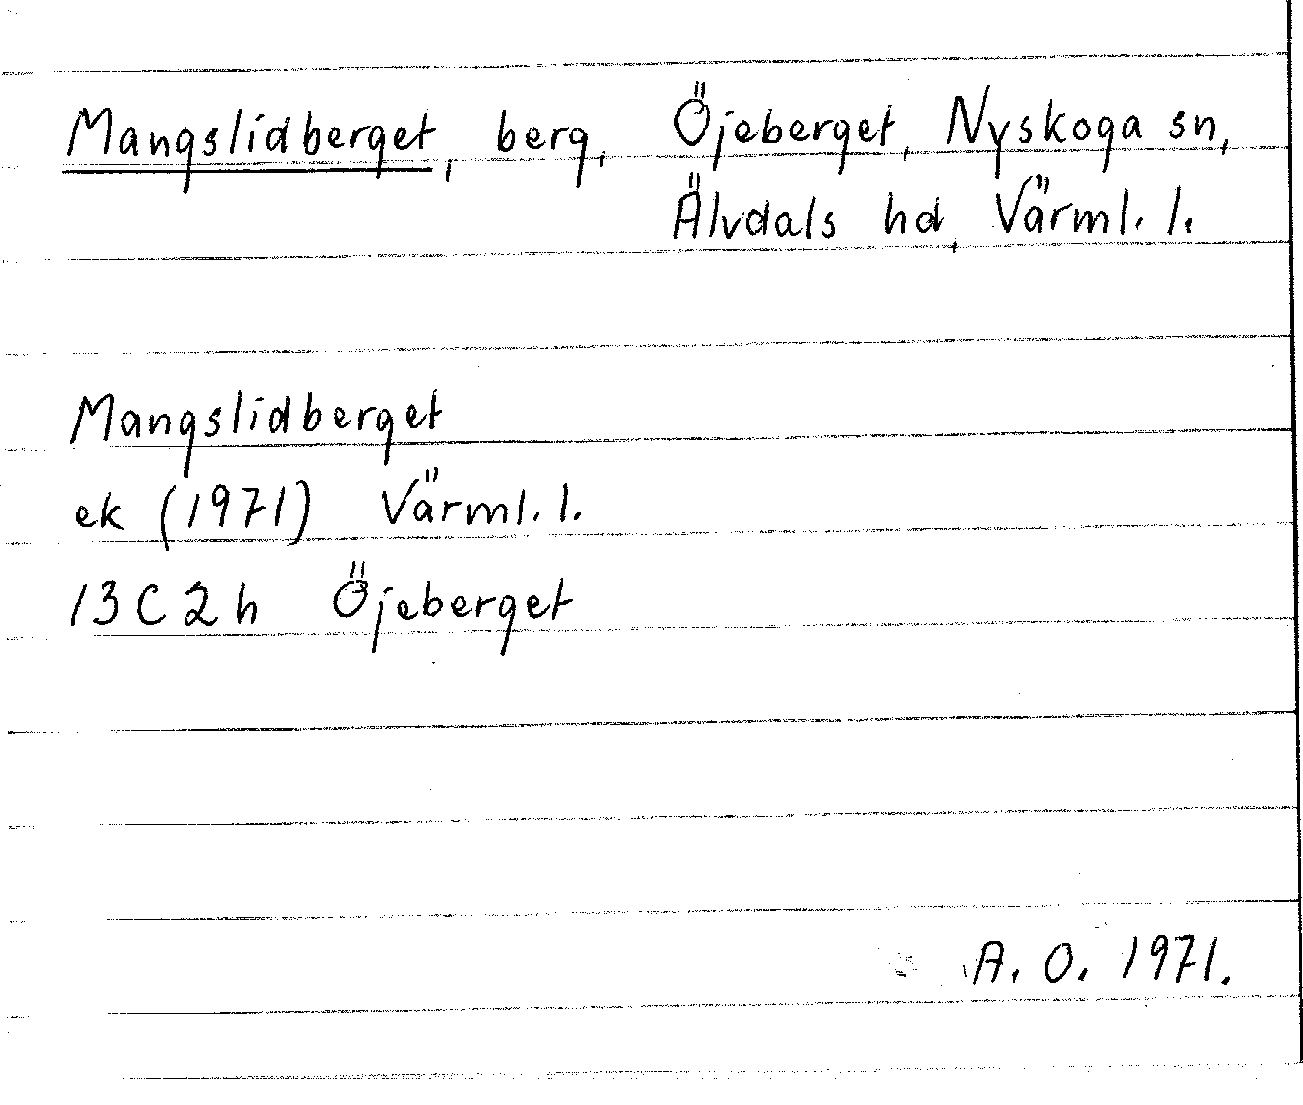 Mangslidberget, berg, Öjeberget, Nyskoga sn,
Älvdals hd, Värml. l.
Mangslidberget
ek (1971) Värml. l.
13C2h Öjeberget
A. O. 1971.